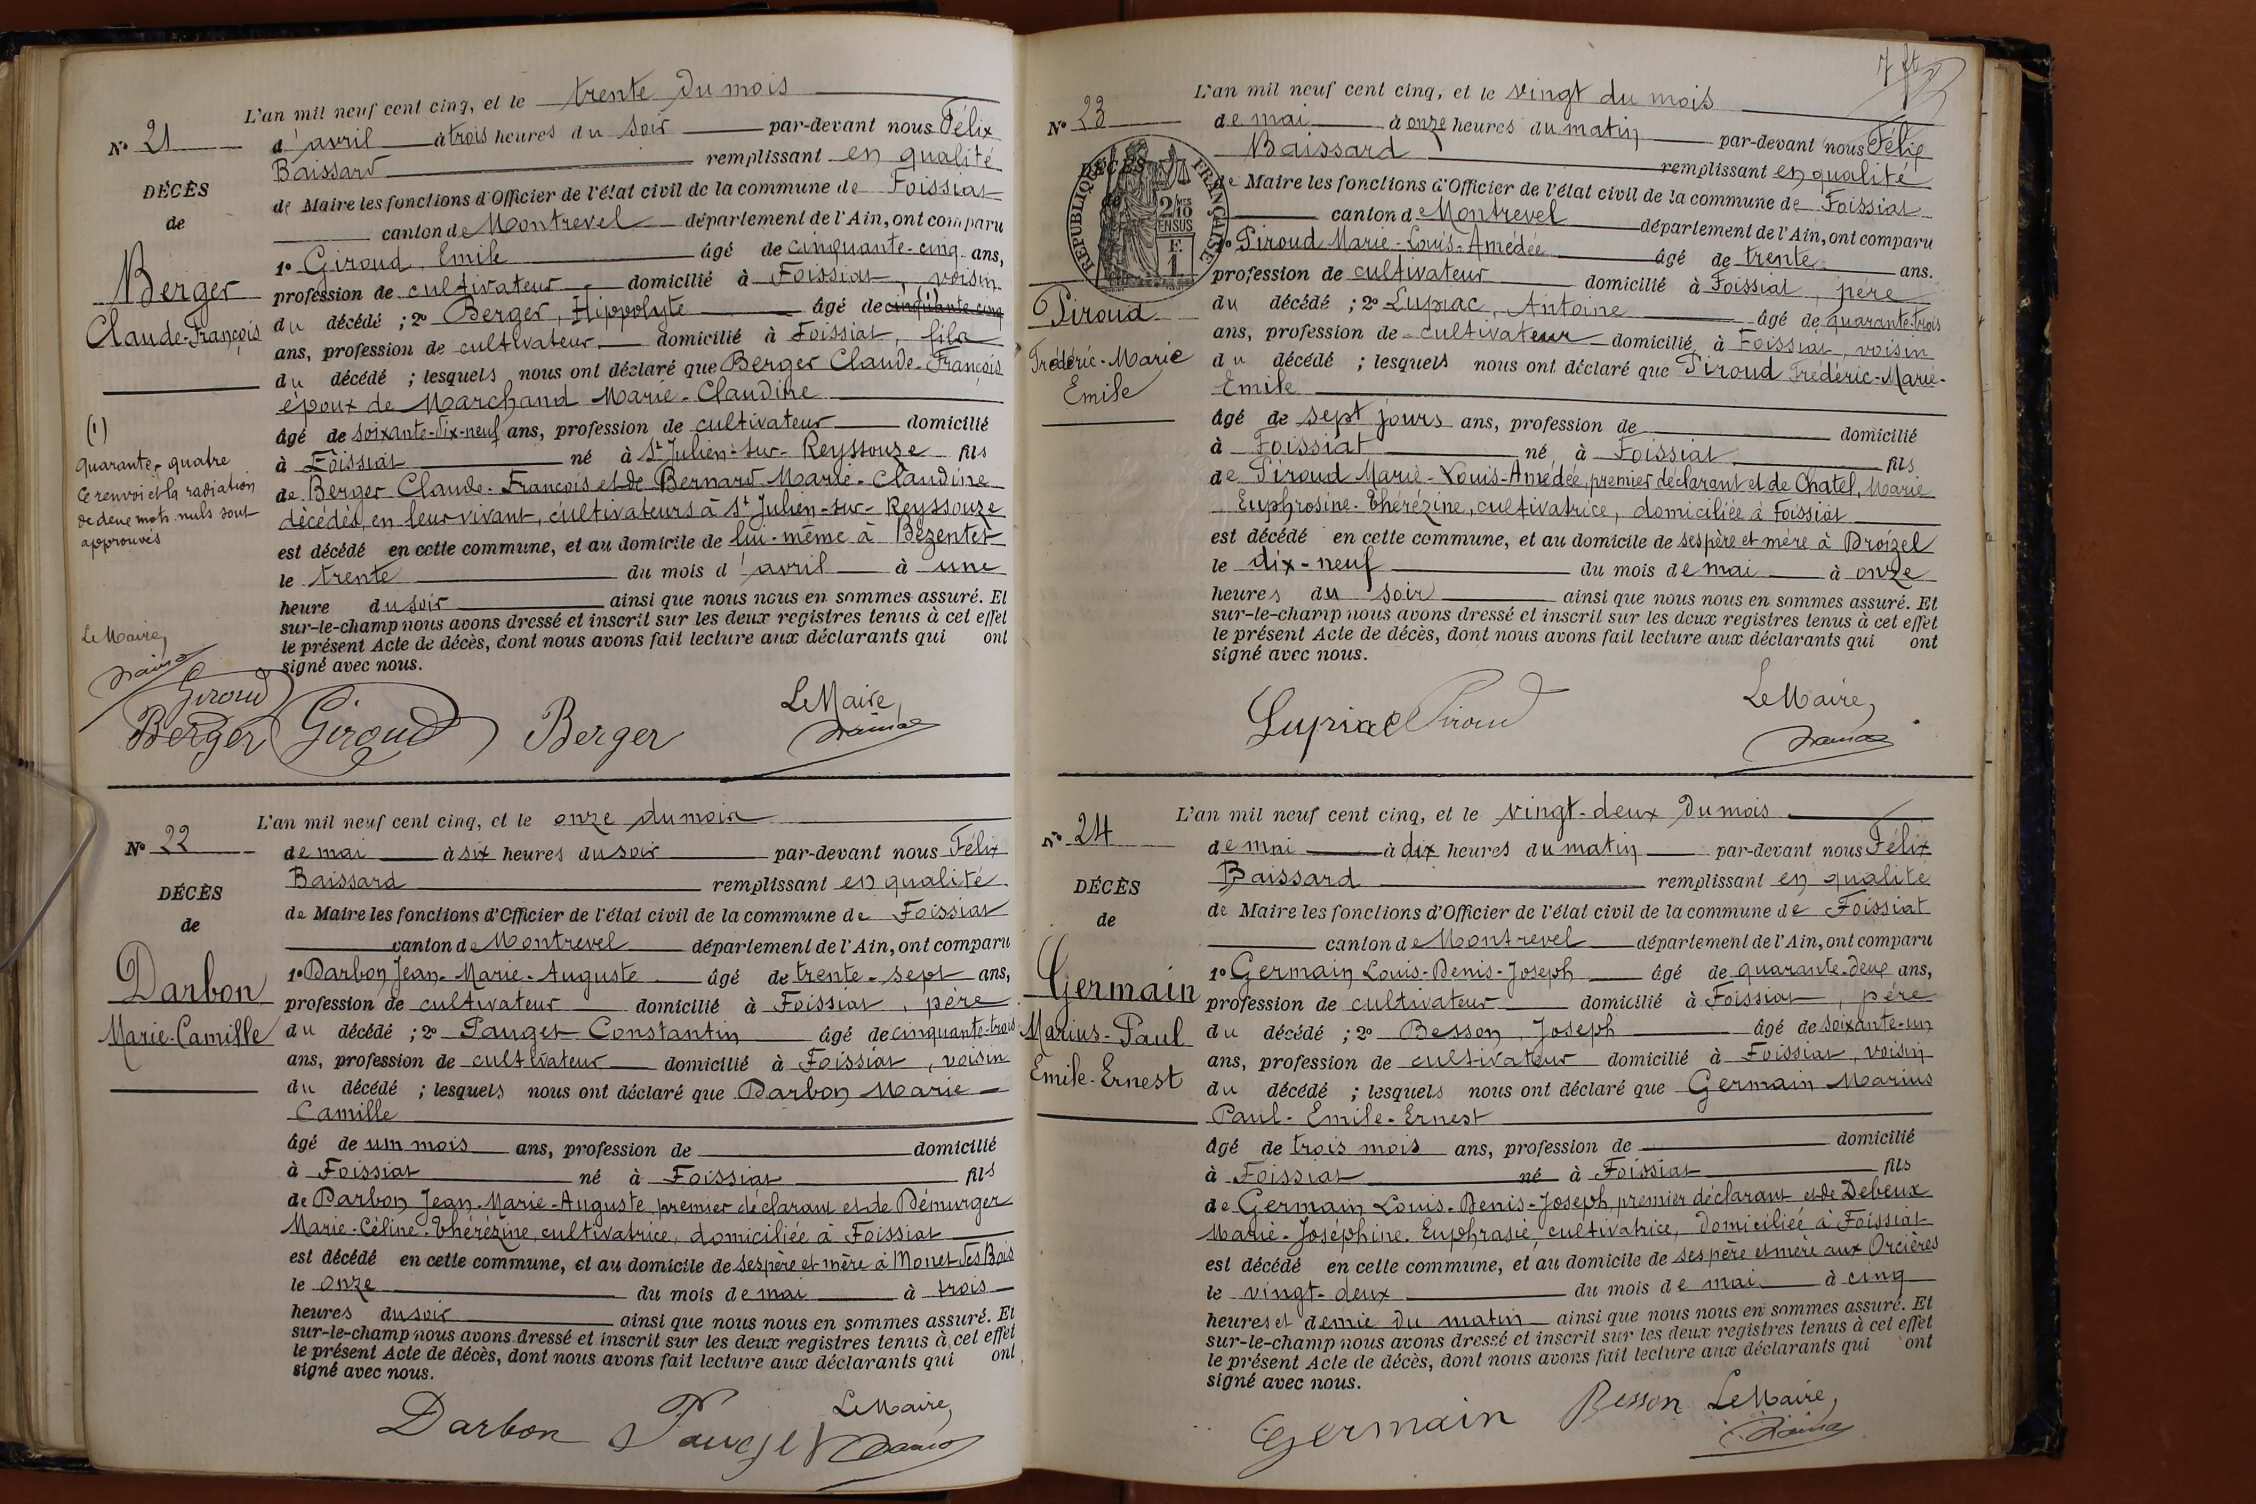 L'an mil neuf cent cinq, et le trente du mois
N° 21
d'avril à trois heures du soir par-devant nous Félix
Baissard remplissant en qualité
DÉCÈS
de Maire les fonctions d'Officier de l'état civil de la commune de Foissiat
de
canton de Montrevel département de l'Ain, ont comparu
1° Giroud, Emile âgé de cinquante-cinq ans,
Berger
profession de cultivateur domicilié à Foissiat, voisin
Claude-François
du décédé ; 2° Berger, Hippolyte âgé de cinquante cinq
ans, profession de cultivateur domicilié à Foissiat, fils
du décédé ; lesquels nous ont déclaré que Berger Claude-François
époux de Marchand Marie-Claudine
(1)
âgé de soixante-dix-neuf ans, profession de cultivateur domicilié
quarante-quatre
à Foissiat né à St Julien-sur-Reyssouze fils
Ce renvoi et la radiation
de Berger Claude-François et de Bernard Marie-Claudine
de deux mots nuls sont
décédés, en leur vivant, cultivateurs à St Julien-sur-Reyssouze
approuvés
est décédé en cette commune, et au domicile de lui-même à Bézentet
le trente du mois d'avril à une
heure du soir ainsi que nous nous en sommes assuré. Et
sur-le-champ nous avons dressé et inscrit sur les deux registres tenus à cet effet
Le Maire,
le présent Acte de décès, dont nous avons fait lecture aux déclarants qui ont
signé avec nous.
Giroud
Le Maire,
Berger Giroud Berger
L'an mil neuf cent cinq, et le onze du mois
N° 22
de mai à six heures du soir par-devant nous Félix
Baissard remplissant en qualité
DÉCÈS
de Maire les fonctions d'Officier de l'état civil de la commune de Foissiat
de
canton de Montrevel département de l'Ain, ont comparu
1° Darbon Jean-Marie-Auguste âgé de trente-sept ans,
Darbon
profession de cultivateur domicilié à Foissiat, père
Marie-Camille
du décédé ; 2° Pauget Constantin âgé de cinquante-trois
ans, profession de cultivateur domicilié à Foissiat, voisin
du décédé ; lesquels nous ont déclaré que Darbon Marie-
Camille
âgé de un mois ans, profession de domicilié
à Foissiat né à Foissiat fils
de Darbon Jean-Marie-Auguste premier déclarant et de Démurger
Marie-Céline-Thérézine, cultivatrice, domiciliée à Foissiat
est décédé en cette commune, et au domicile de ses père et mère à Monet des Bois
le onze du mois de mai à trois
heures du soir ainsi que nous nous en sommes assuré. Et
sur-le-champ nous avons dressé et inscrit sur les deux registres tenus à cet effet
le présent Acte de décès, dont nous avons fait lecture aux déclarants qui ont
signé avec nous.
Le Maire,
Darbon Pauget
7
L'an mil neuf cent cinq, et le vingt du mois
N° 23
de mai à onze heures du matin par-devant nous Félix
Baissard remplissant en qualité
DÉCÈS
RÉPUBLIQUE FRANÇAISE
2/10 EN SUS
F. 1
de Maire les fonctions d'Officier de l'état civil de la commune de Foissiat
canton de Montrevel département de l'Ain, ont comparu
1° Piroud Marie-Louis-Amédée âgé de trente ans.
profession de cultivateur domicilié à Foissiat, père
Piroud
du décédé ; 2° Lupiac, Antoine âgé de quarante-trois
ans, profession de cultivateur domicilié à Foissiat, voisin
Frédéric-Marie
du décédé ; lesquels nous ont déclaré que Piroud Frédéric-Marie-
Emile
Emile
âgé de sept jours ans, profession de domicilié
à Foissiat né à Foissiat fils
de Piroud Marie-Louis-Amédée, premier déclarant et de Chatel, Marie
Euphrosine-Thérézine, cultivatrice, domiciliée à Foissiat
est décédé en cette commune, et au domicile de ses père et mère à Broizel
le dix-neuf du mois de mai à onze
heures du soir ainsi que nous nous en sommes assuré. Et
sur-le-champ nous avons dressé et inscrit sur les deux registres tenus à cet effet
le présent Acte de décès, dont nous avons fait lecture aux déclarants qui ont
signé avec nous.
Le Maire,
Lupiac Piroud
L'an mil neuf cent cinq, et le vingt-deux du mois
N° 24
de mai à dix heures du matin par-devant nous Félix
Baissard remplissant en qualité
DÉCÈS
de Maire les fonctions d'Officier de l'état civil de la commune de Foissiat
de
canton de Montrevel département de l'Ain, ont comparu
1° Germain Louis-Denis-Joseph âgé de quarante-deux ans,
Germain
profession de cultivateur domicilié à Foissiat, père
Marius-Paul
du décédé ; 2° Besson, Joseph âgé de soixante-un
ans, profession de cultivateur domicilié à Foissiat, voisin
Emile-Ernest
du décédé ; lesquels nous ont déclaré que Germain Marius
Paul-Emile-Ernest
âgé de trois mois ans, profession de domicilié
à Foissiat né à Foissiat fils
de Germain Louis-Denis-Joseph, premier déclarant et de Debeux
Marie-Joséphine-Euphrasie, cultivatrice, domiciliée à Foissiat
est décédé en cette commune, et au domicile de ses père et mère aux Orcières
le vingt-deux du mois de mai à cinq
heures et demie du matin ainsi que nous nous en sommes assuré. Et
sur-le-champ nous avons dressé et inscrit sur les deux registres tenus à cet effet
le présent Acte de décès, dont nous avons fait lecture aux déclarants qui ont
signé avec nous.
Germain Besson Le Maire,